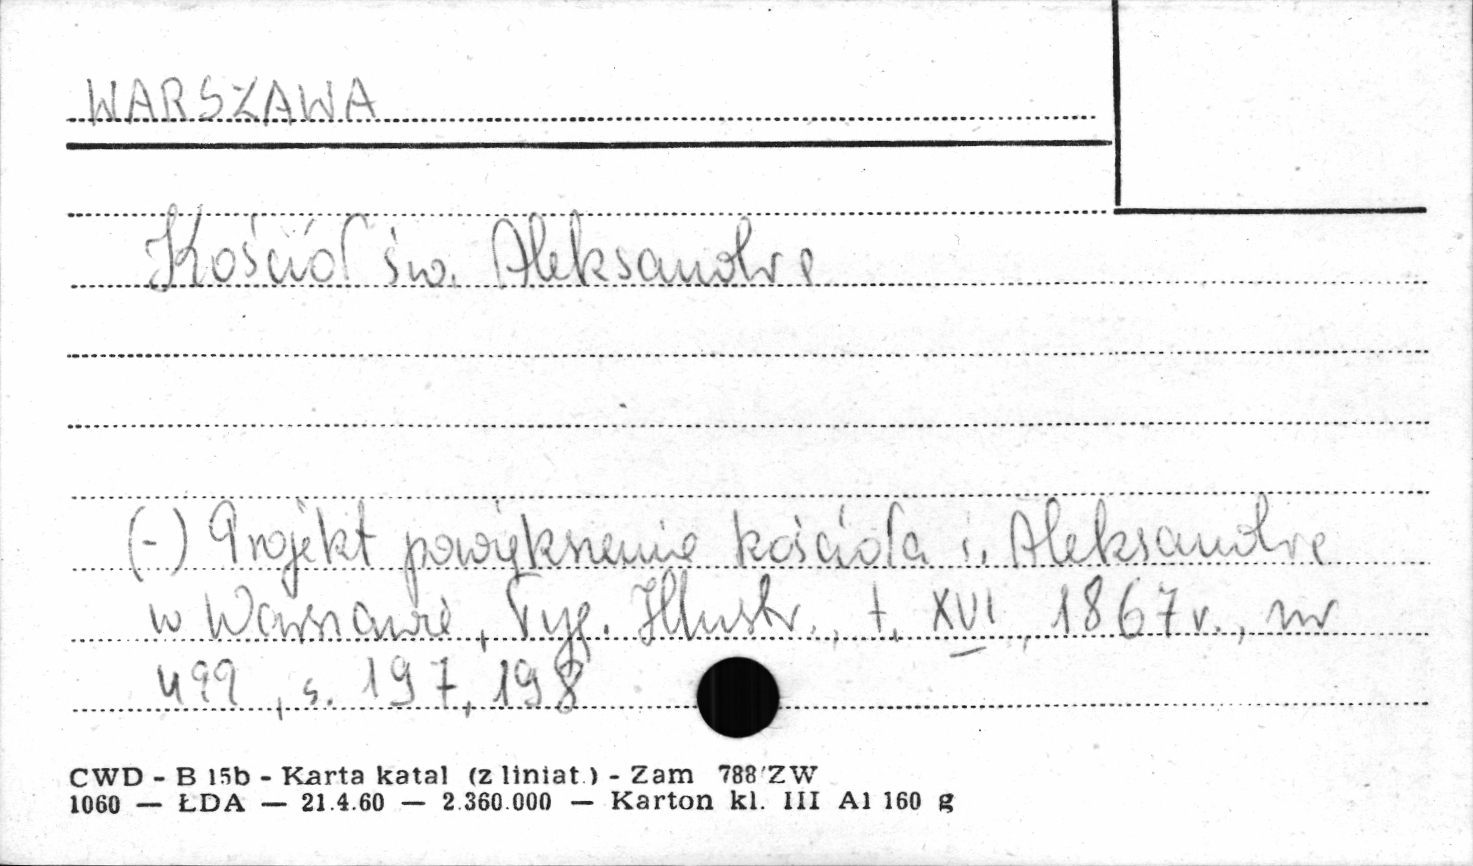 WARSZAWA
Kościół św. Aleksandra
(-) Projekt powiększenia kościoła ś. Aleksandra
w Warszawie, Tyg. Illustr., t. XVI, 1867 r., nr
499, s. 197, 198
CWD - B 15b - Karta katal (z liniat.) - Zam 788/ZW
1060 — ŁDA — 21.4.60 — 2.360.000 — Karton kl. III A1 160 g